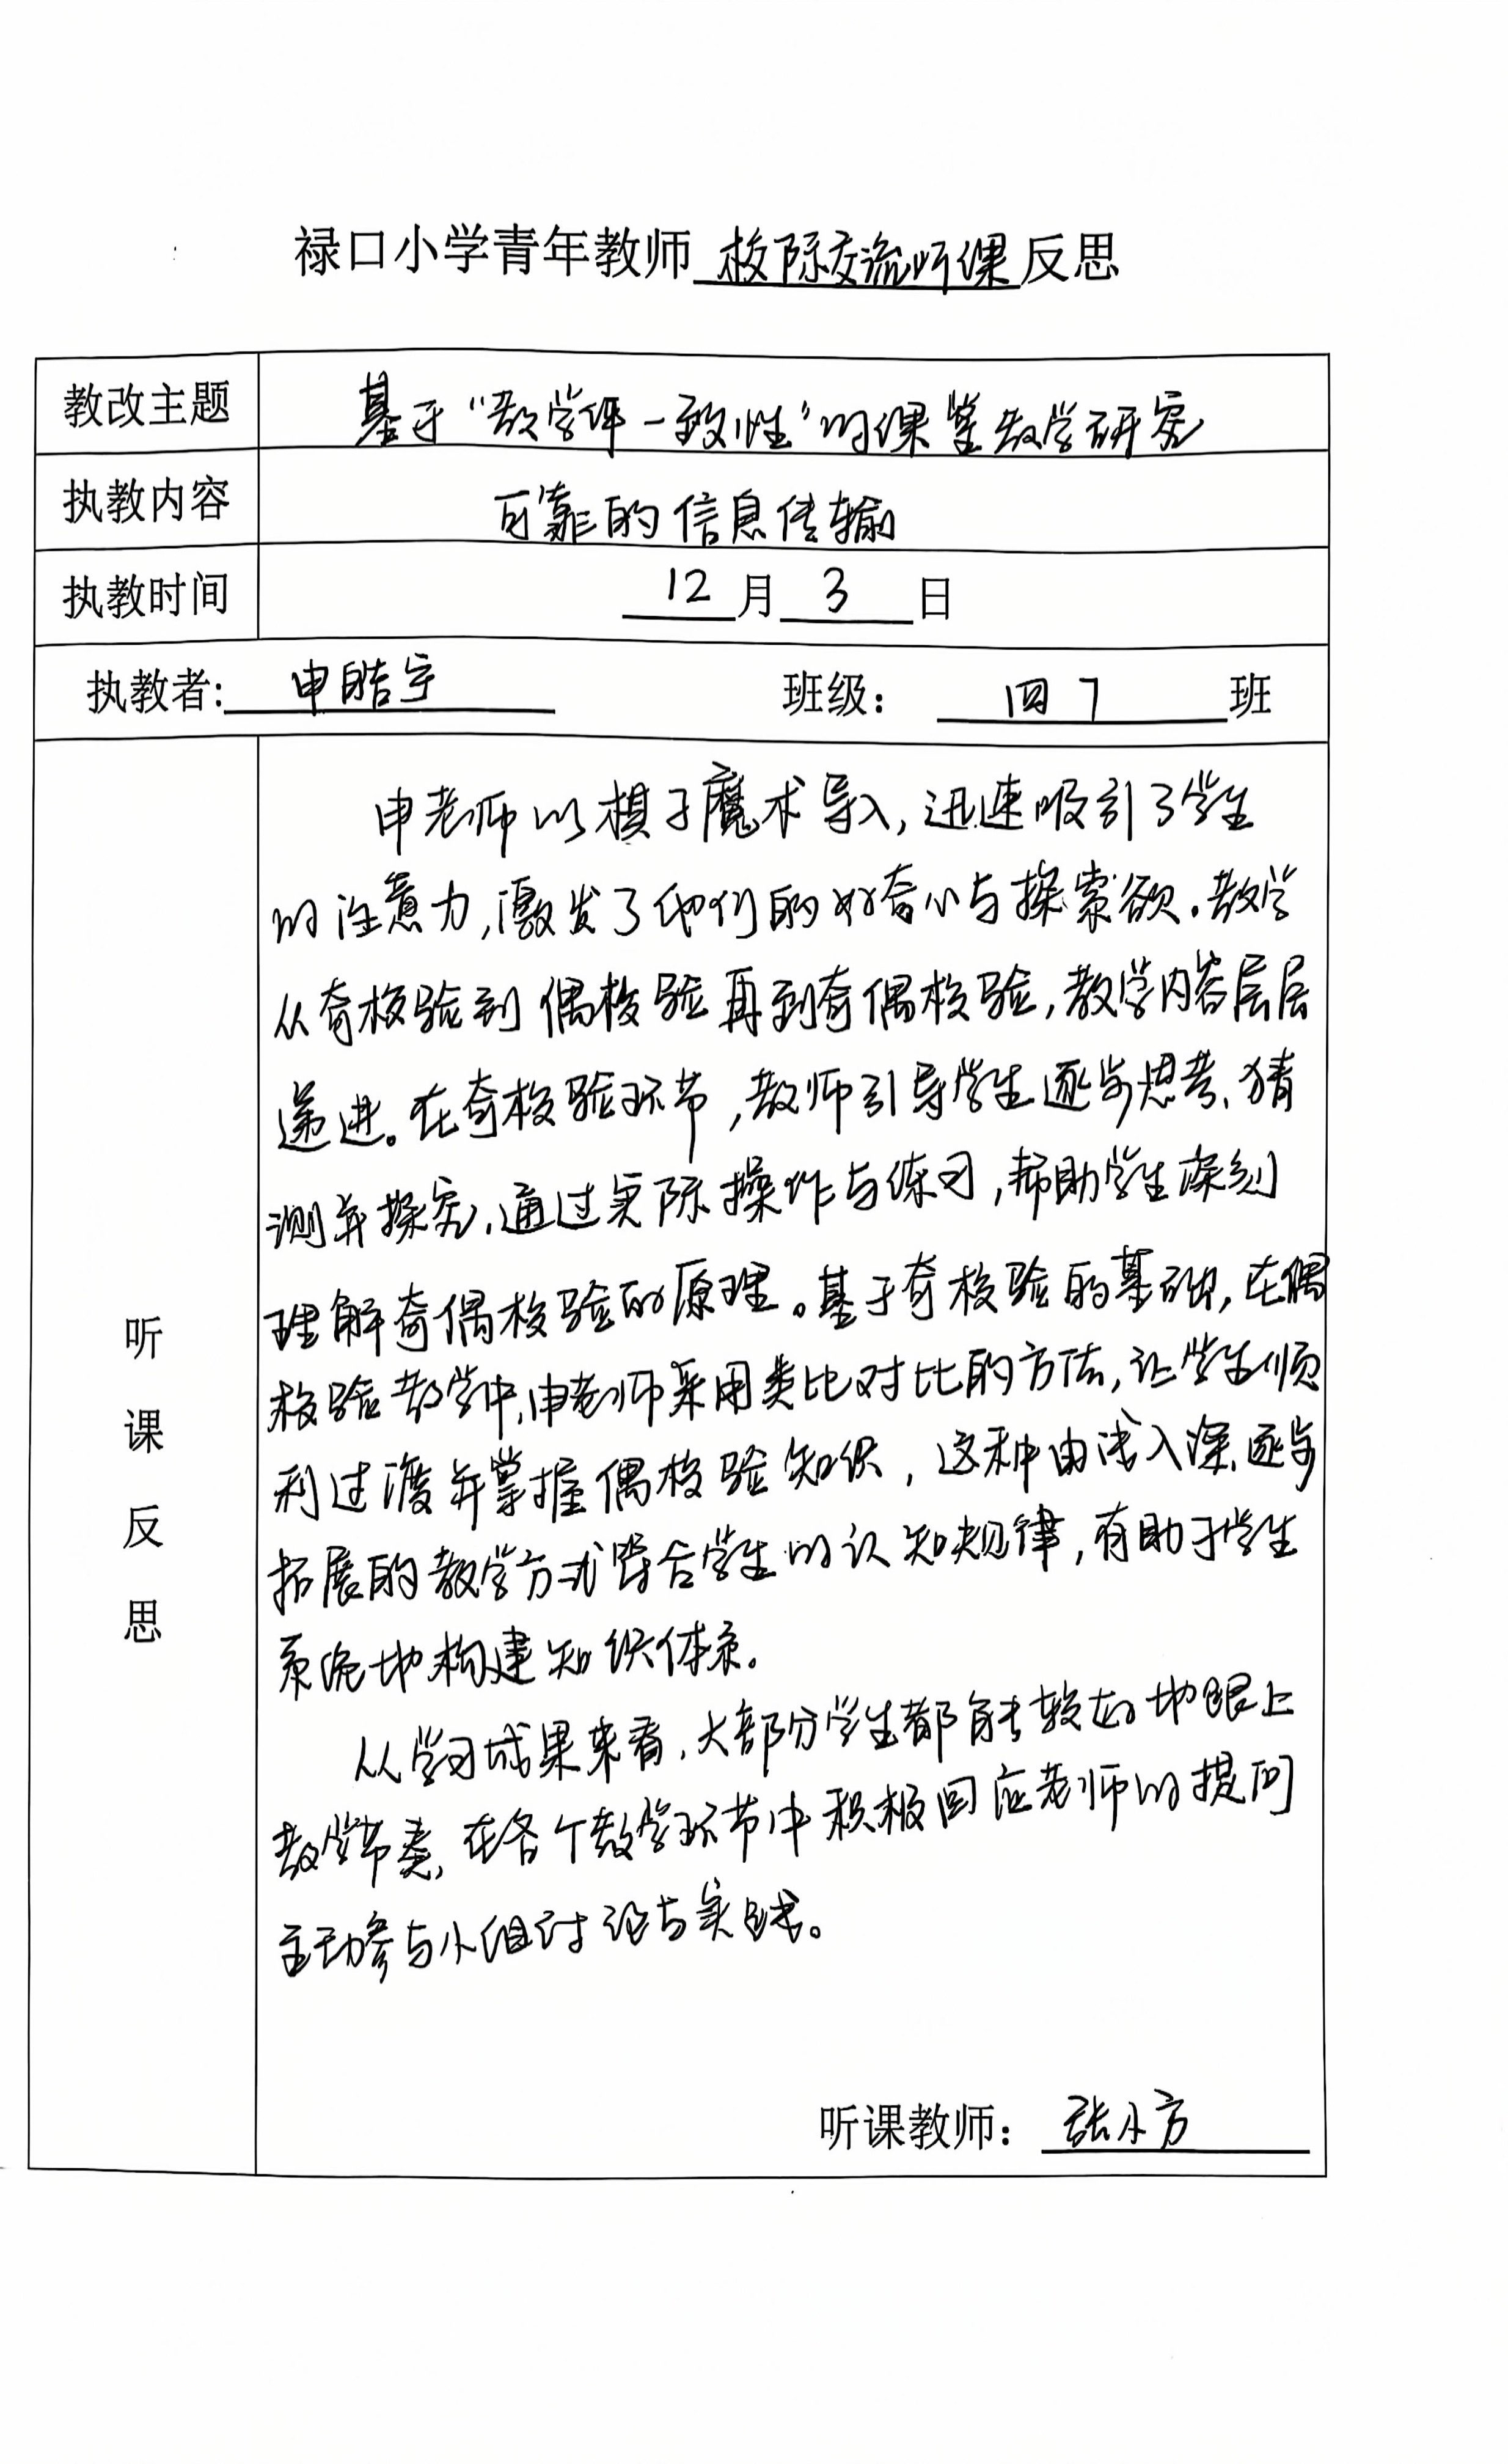 禄口小学青年教师 校际交流听课 反思
教改主题 基于“教学评一致性”的课堂教学研究
执教内容 可靠的信息传输
执教时间 12月3日
执教者: 申皓宇 班级: 四7班
听课反思
申老师以棋子魔术导入,迅速吸引了学生
的注意力,激发了他们的好奇心与探索欲。教学
从奇校验到偶校验再到奇偶校验,教学内容层层
递进。在奇校验环节,教师引导学生逐步思考、猜
测并探究,通过实际操作与练习,帮助学生深刻
理解奇偶校验的原理。基于奇校验的基础,在偶
校验教学中,申老师采用类比对比的方法,让学生顺
利过渡并掌握偶校验知识,这种由浅入深、逐步
拓展的教学方式符合学生的认知规律,有助于学生
系统地构建知识体系。
从学习成果来看,大部分学生都能较好地跟上
教学节奏,在各个教学环节中积极回应老师的提问
主动参与小组讨论与实践。
听课教师: 张小方